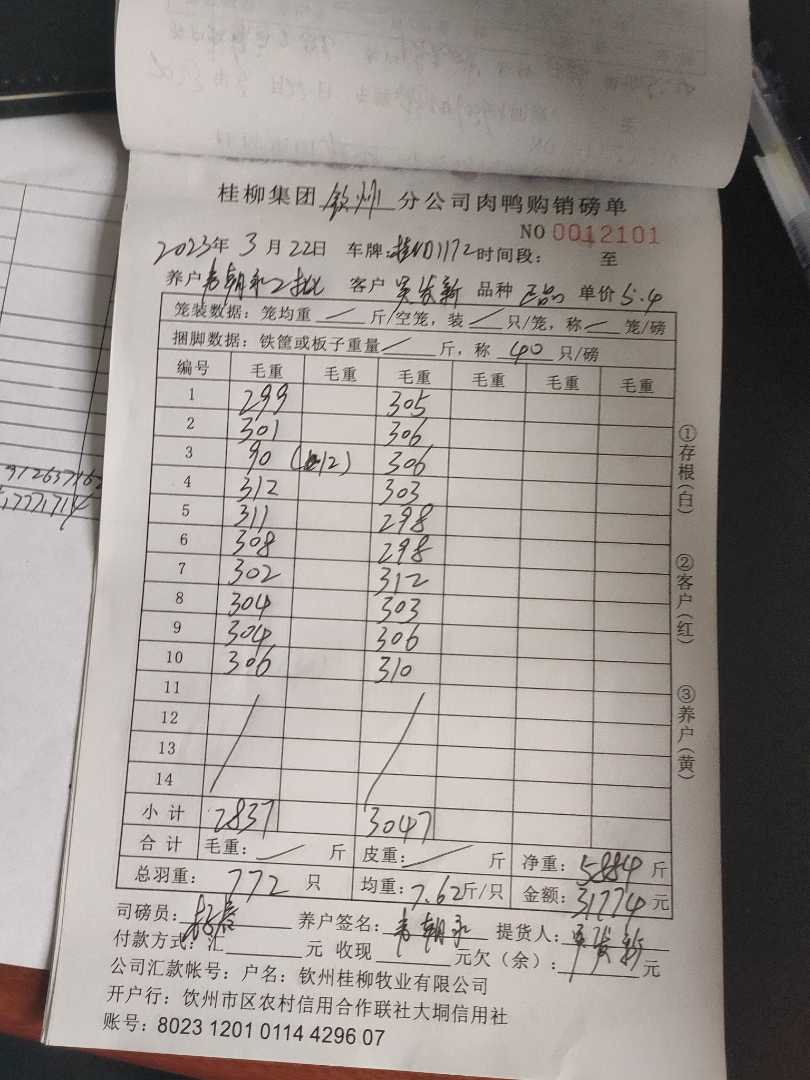 桂柳集团 钦州 分公司肉鸭购销磅单
NO 0012101
2023年 3月 22日 车牌: 1172 时间段: 至
养户 韦朝永2批 客户 吴发新 品种 正品 单价 5.4
笼装数据: 笼均重 / 斤/空笼, 装 / 只/笼, 称 / 笼/磅
捆脚数据: 铁筐或板子重量 / 斤, 称 40 只/磅
编号 毛重 毛重 毛重 毛重 毛重 毛重
1 299 305
2 301 306
3 90 (12) 306
4 312 303
5 311 298
6 308 298
7 302 312
8 304 303
9 304 306
10 306 310
11
12
13
14
小计 2837 3047
合计 毛重: / 斤 皮重: / 斤 净重: 5884 斤
总羽重: 772 只 均重: 7.62 斤/只 金额: 31774 元
司磅员: 养户签名: 韦朝永 提货人: 吴发新
付款方式: 汇 元 收现 元欠(余): 元
公司汇款帐号: 户名: 钦州桂柳牧业有限公司
开户行: 饮州市区农村信用合作联社大垌信用社
账号: 8023 1201 0114 4296 07
①存根(白)
②客户(红)
③养户(黄)